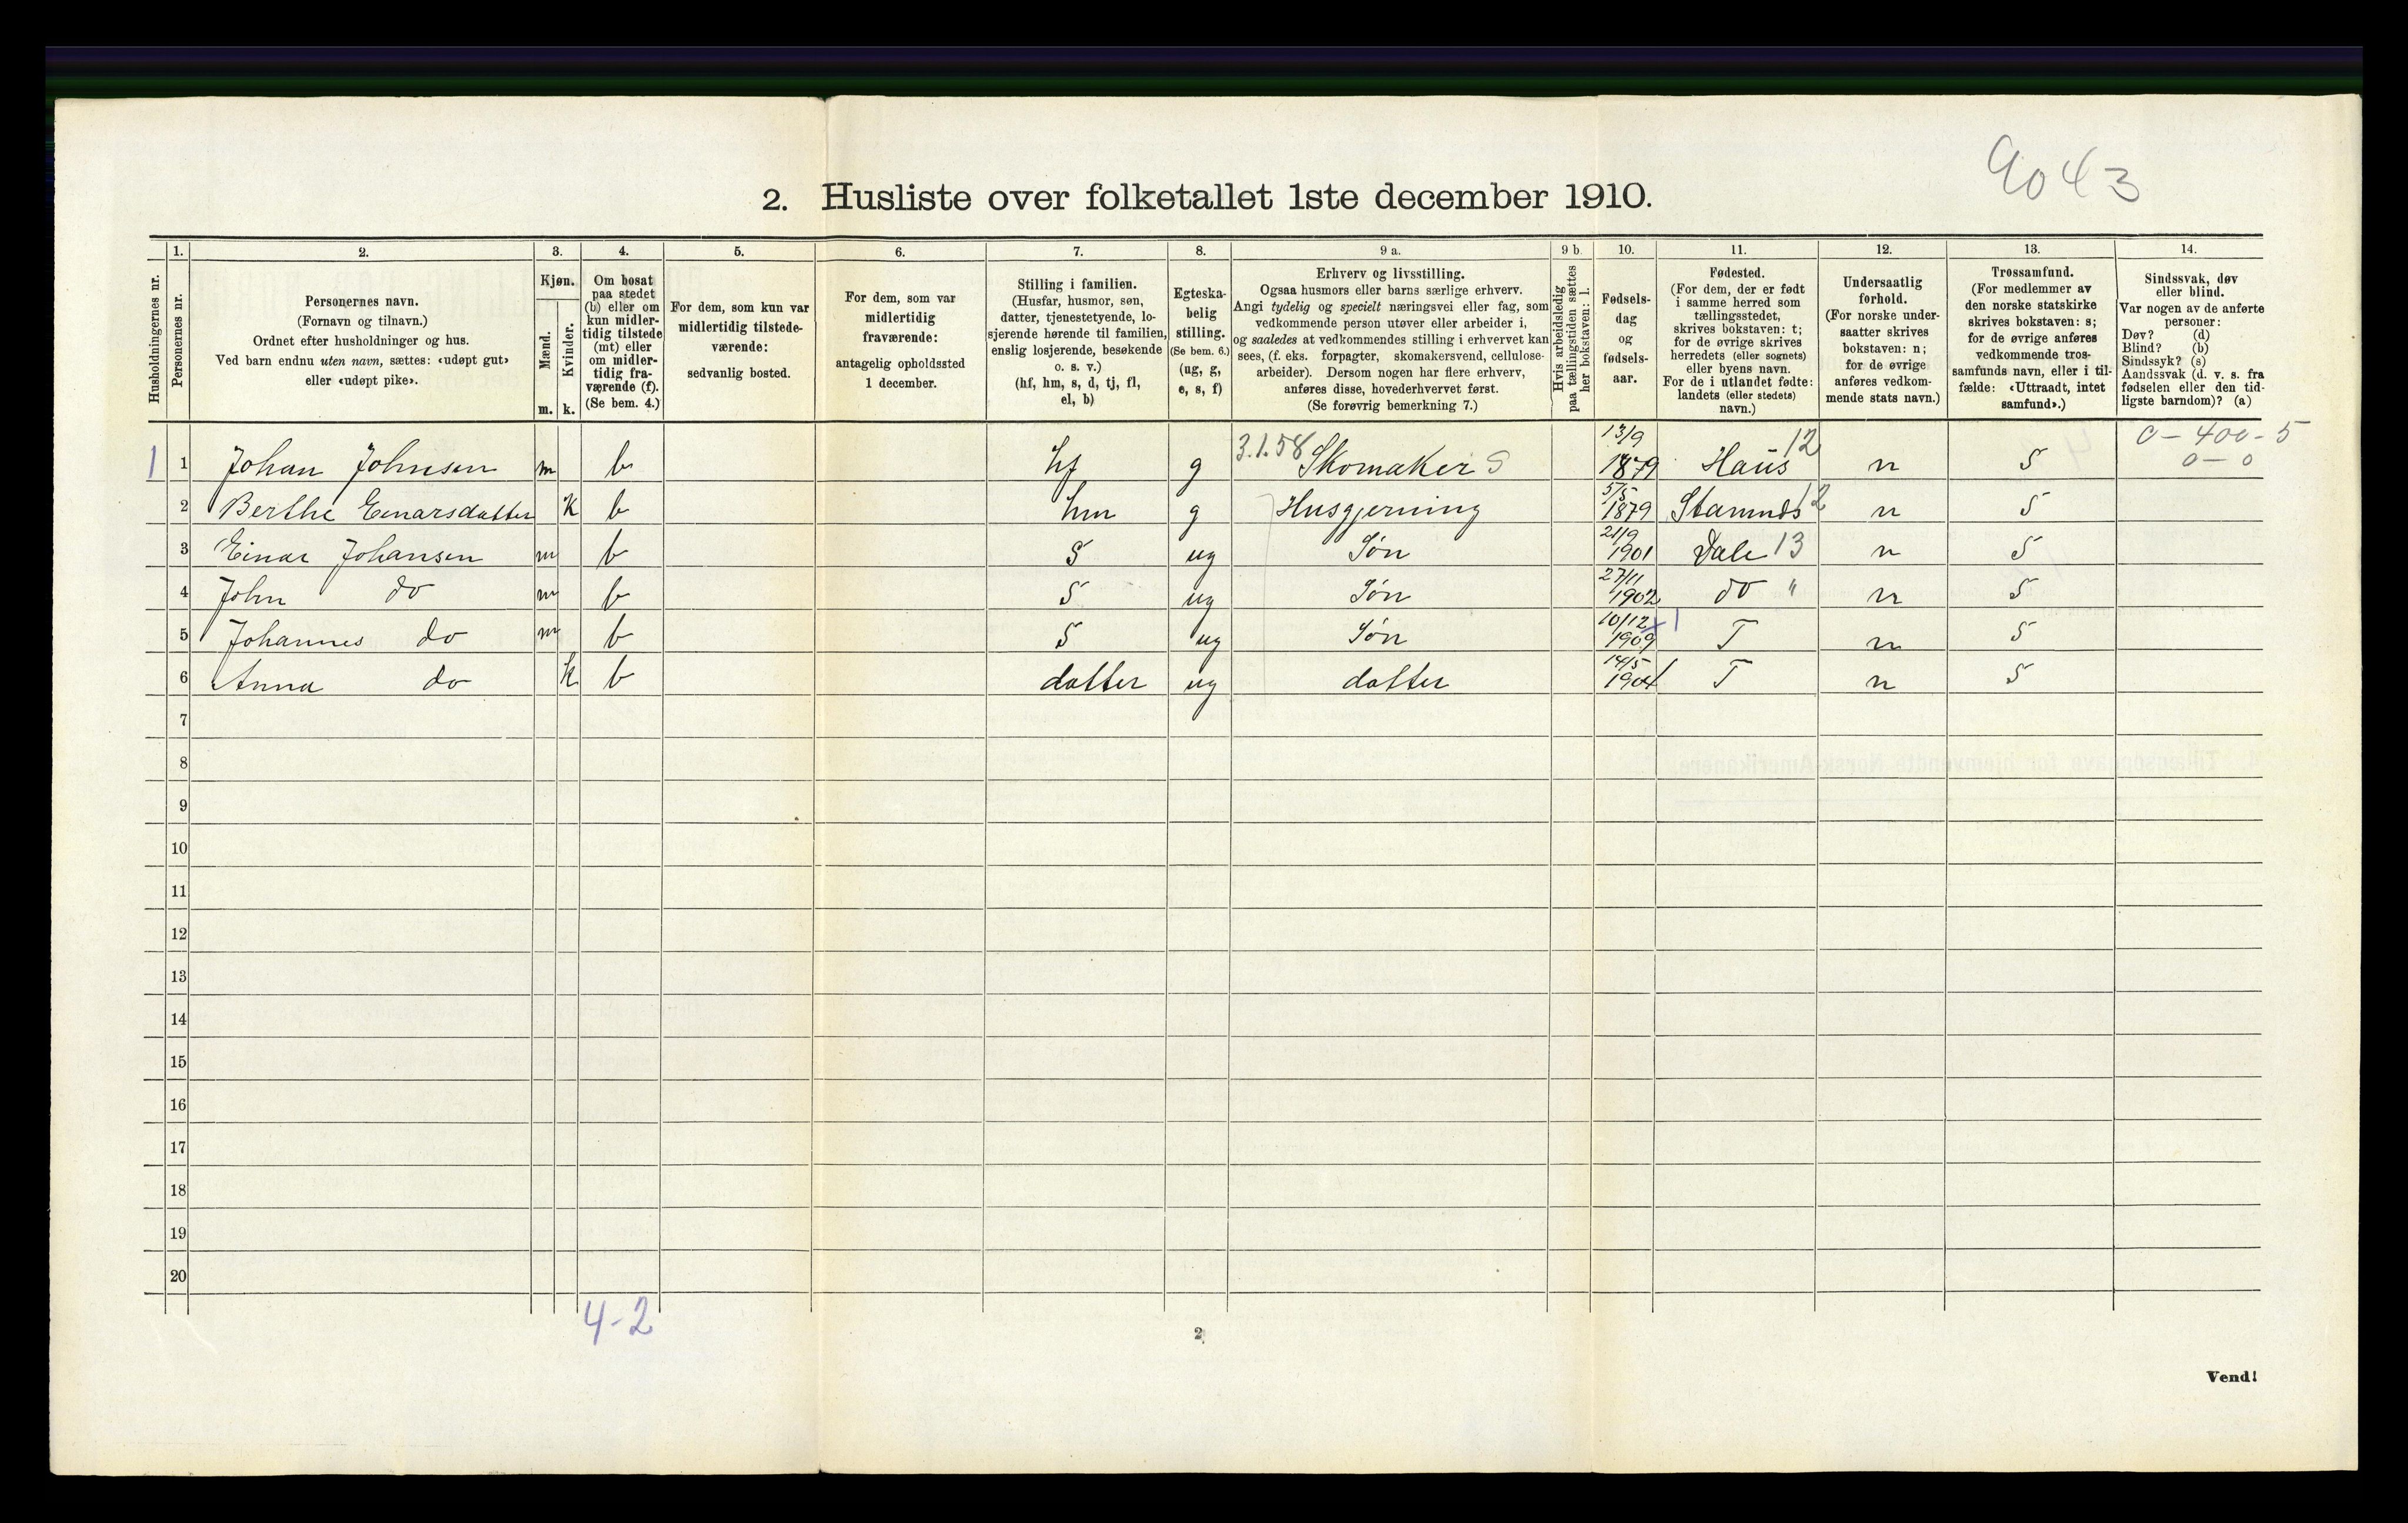 9043
2. Husliste over folketallet 1ste december 1910.
Husholdningernes nr.
1.
Personernes nr.
2.
Personernes navn.
(Fornavn og tilnavn.)
Ordnet efter husholdninger og hus.
Ved barn endnu uten navn, sættes: «udøpt gut»
eller «udøpt pike».
3.
Kjøn.
Mænd.
Kvinder.
m.
k.
4.
Om bosat
paa stedet
(b) eller om
kun midler-
tidig tilstede
(mt) eller
om midler-
tidig fra-
værende (f).
(Se bem. 4.)
5.
For dem, som kun var
midlertidig tilstede-
værende:
sedvanlig bosted.
6.
For dem, som var
midlertidig
fraværende:
antagelig opholdssted
1 december.
7.
Stilling i familien.
(Husfar, husmor, søn,
datter, tjenestetyende, lo-
sjerende hørende til familien,
enslig losjerende, besøkende
o. s. v.)
(hf, hm, s, d, tj, fl,
el, b)
8.
Egteska-
belig
stilling.
(Se bem. 6.)
(ug, g,
e, s, f)
9 a.
Erhverv og livsstilling.
Ogsaa husmors eller barns særlige erhverv.
Angi tydelig og specielt næringsvei eller fag, som
vedkommende person utøver eller arbeider i,
og saaledes at vedkommendes stilling i erhvervet kan
sees, (f. eks. forpagter, skomakersvend, cellulose-
arbeider). Dersom nogen har flere erhverv,
anføres disse, hovederhvervet først.
(Se forøvrig bemerkning 7.)
9 b.
Hvis arbeidsledig
paa tællingstiden sættes
her bokstaven: l.
10.
Fødsels-
dag
og
fødsels-
aar.
11.
Fødested.
(For dem, der er født
i samme herred som
tællingsstedet,
skrives bokstaven: t;
for de øvrige skrives
herredets (eller sognets)
eller byens navn.
For de i utlandet fødte:
landets (eller stedets)
navn.)
12.
Undersaatlig
forhold.
(For norske under-
saatter skrives
bokstaven: n;
for de øvrige
anføres vedkom-
mende stats navn.)
13.
Trossamfund.
(For medlemmer av
den norske statskirke
skrives bokstaven: s;
for de øvrige anføres
vedkommende tros-
samfunds navn, eller i til-
fælde: «Uttraadt, intet
samfund».)
14.
Sindssvak, døv
eller blind.
Var nogen av de anførte
personer:
Døv? (d)
Blind? (b)
Sindssyk? (s)
Aandssvak (d. v. s. fra
fødselen eller den tid-
ligste barndom)? (a)
1 1 Johan Johnsen m b hf g 3.1.58 Skomaker S 13/9 1879 Haus 12 n S 0-400-5
0-0
2 Berthe Einarsdatter k b hm g Husgjerning 5/5 1879 Stamnds 12 n S
3 Einar Johansen m b S ug Søn 21/9 1901 Dale 13 n S
4 John do m b S ug Søn 27/11 1902 do " n S
5 Johannes do m b S ug Søn 10/12 1909 x 1 T n S
6 Anna do k b datter ug datter 14/5 1904 T n S
7
8
9
10
11
12
13
14
15
16
17
18
19
20
4-2
2
Vend!